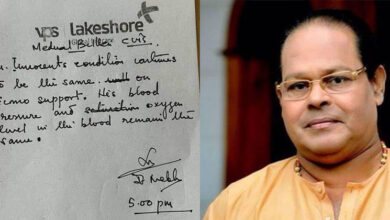 vps lakeshore
Medical Bulletin
. Innocent's condition continues
to be the same. on
ecmo support. His blood
pressure and saturation oxygen
level in the blood remain the
same.
5.00 pm